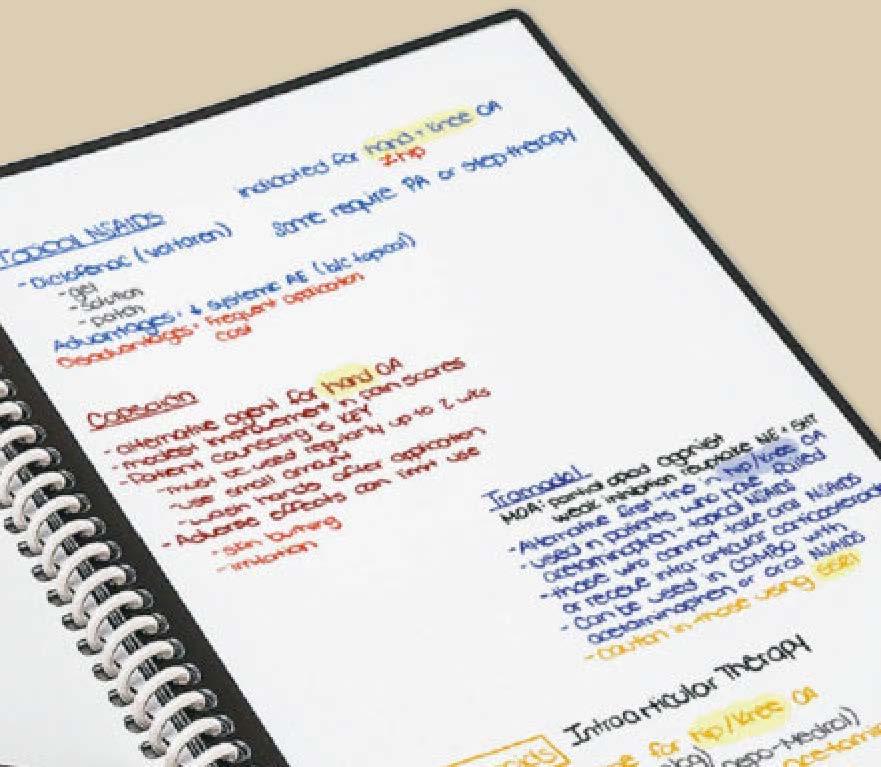 indicated for hand + knee OA
≠ hip
Some require PA or step therapy
Topical NSAIDs
- Diclofenac (voltaren)
- gel
- Solution
- patch
Advantages: ↓ systemic AE (b/c topical)
Disadvantages: frequent application
cost
Capsaicin
- alternative agent for hand OA
- modest improvement in pain scores
- Patient counseling is KEY
- must be used regularly up to 2 wks
- use small amount
- wash hands after application
- Adverse effects can limit use
- skin burning
- irritation
Tramadol
MOA: partial opioid agonist
weak inhibition reuptake NE + 5HT
- Alternative first-line in hip/knee OA
- used in patients who have failed
acetaminophen + topical NSAIDs
- those who cannot take oral NSAIDs
or receive intra-articular corticosteroids
- Can be used in COMBO with
acetaminophen or oral NSAIDs
- caution in those using SSRI
Intraarticular Therapy
for hip/knee OA
(Depo-Medrol)